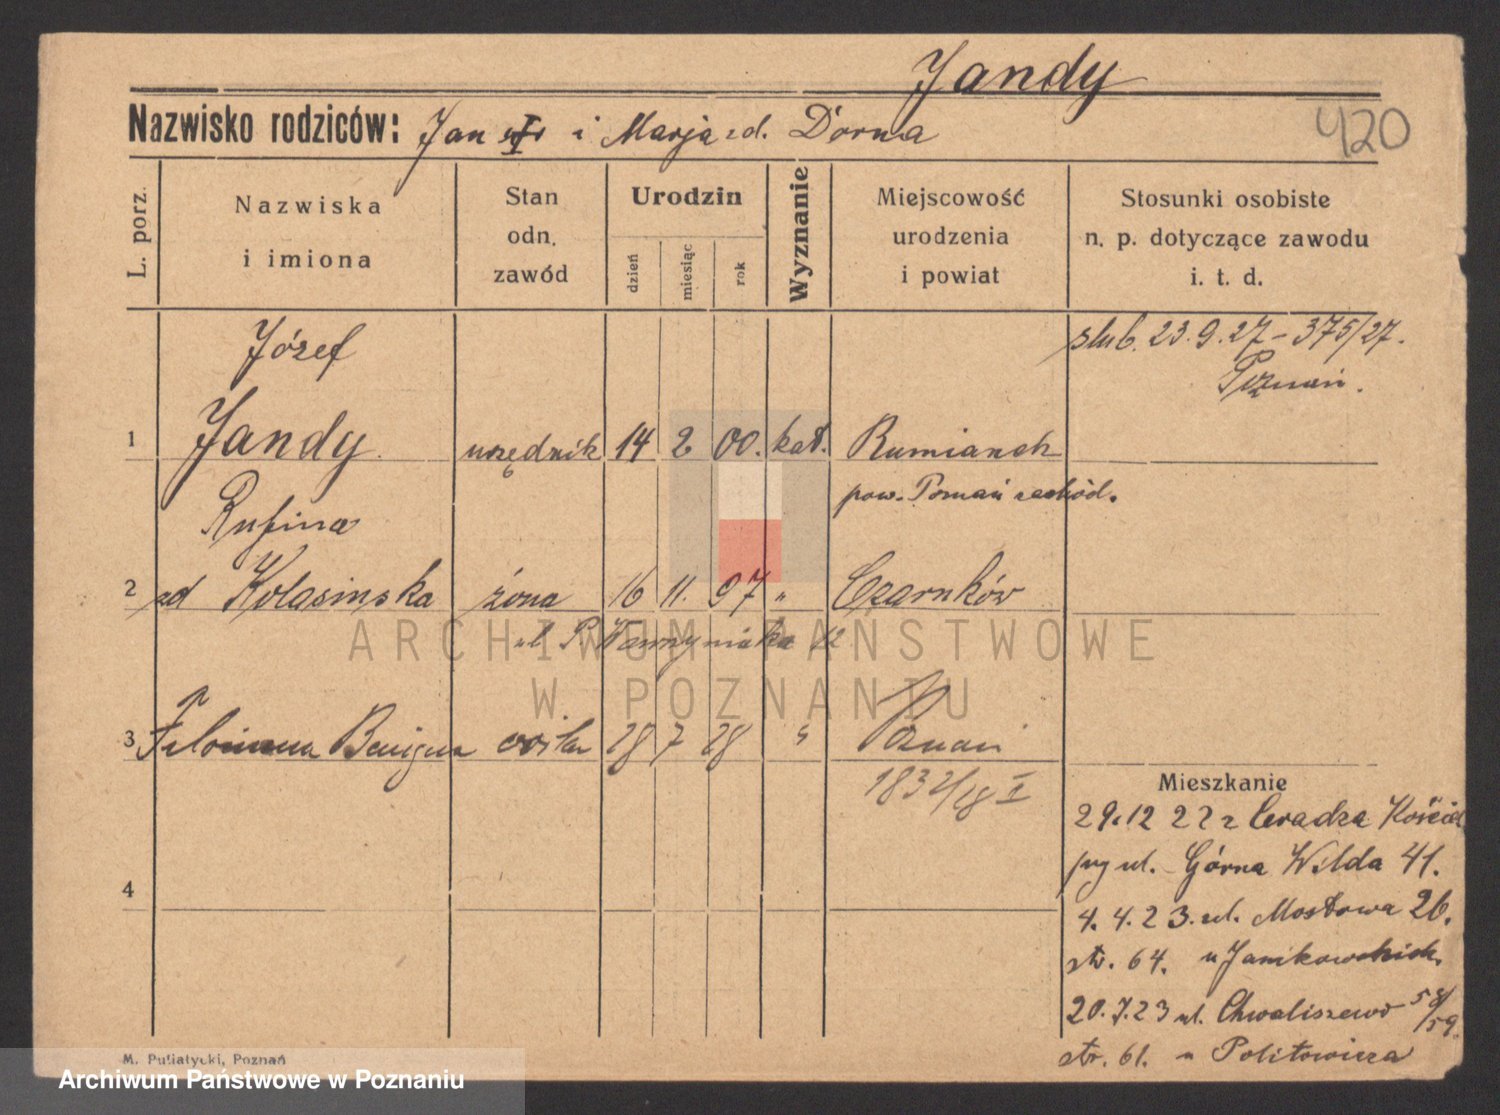 Jandy
420
Nazwisko rodziców: Jan i Marja zd. Dorna
L. porz.
Nazwiska
i imiona
Stan
odn.
zawód
Urodzin
dzień
miesiąc
rok
Wyznanie
Miejscowość
urodzenia
i powiat
Stosunki osobiste
n. p. dotyczące zawodu
i. t. d.
Józef
ślub. 23.9.27 - 375/27.
Poznań.
1 Jandy urzędnik 14 2 00. kat. Rumianek
pow. Poznań zachód.
Rufina
2 zd Kolasinska żona 16 11. 97 " Czarnków
ul. P. Wawrzyniaka 12
3 Benigna córka 28 7 28 " Poznań
1832/28 I
4
Mieszkanie
29.12 22 z Ceradza Kościel
ul. Górna Wilda 41.
4.4.23. ul. Mostowa 26.
str. 64. u Janikowskich.
20.7.23 ul. Chwaliszewo 58/59.
str. 61. u Politowicza
M. Putiatycki, Poznań
ARCHIWUM PAŃSTWOWE
W POZNANIU
Archiwum Państwowe w Poznaniu